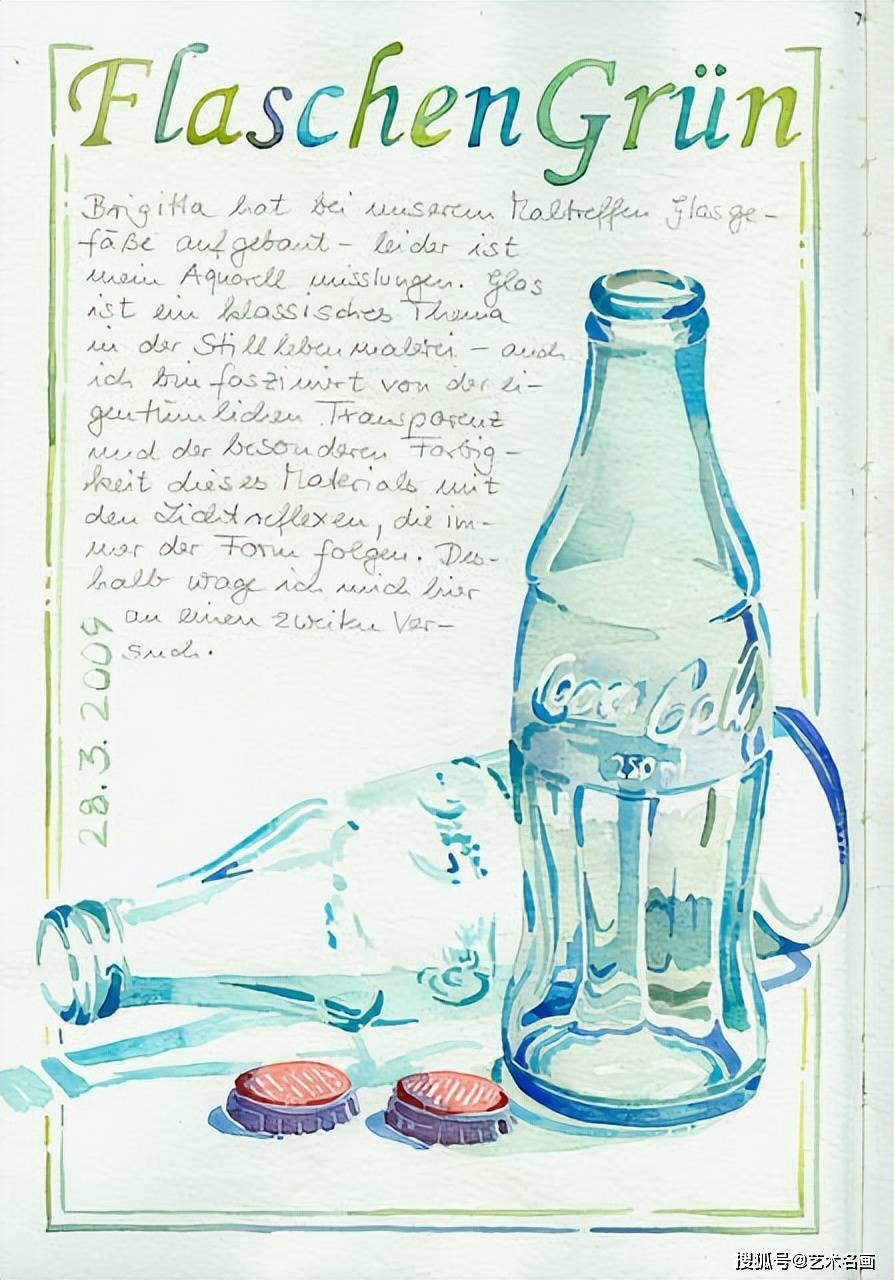 FlaschenGrün
Brigitta hat bei unserem Maltreffen Glasge-
fäße aufgebaut – leider ist
mein Aquarell misslungen. Glas
ist ein klassisches Thema
in der Stilllebenmalerei – auch
ich bin fasziniert von der ei-
gentümlichen Transparenz
und der besonderen Farbig-
keit dieses Materials mit
den Lichtreflexen, die im-
mer der Form folgen. Des-
halb wage ich mich hier
an einen zweiten Ver-
such.
28.3.2009
Coca Cola
250ml
搜狐号@艺术名画